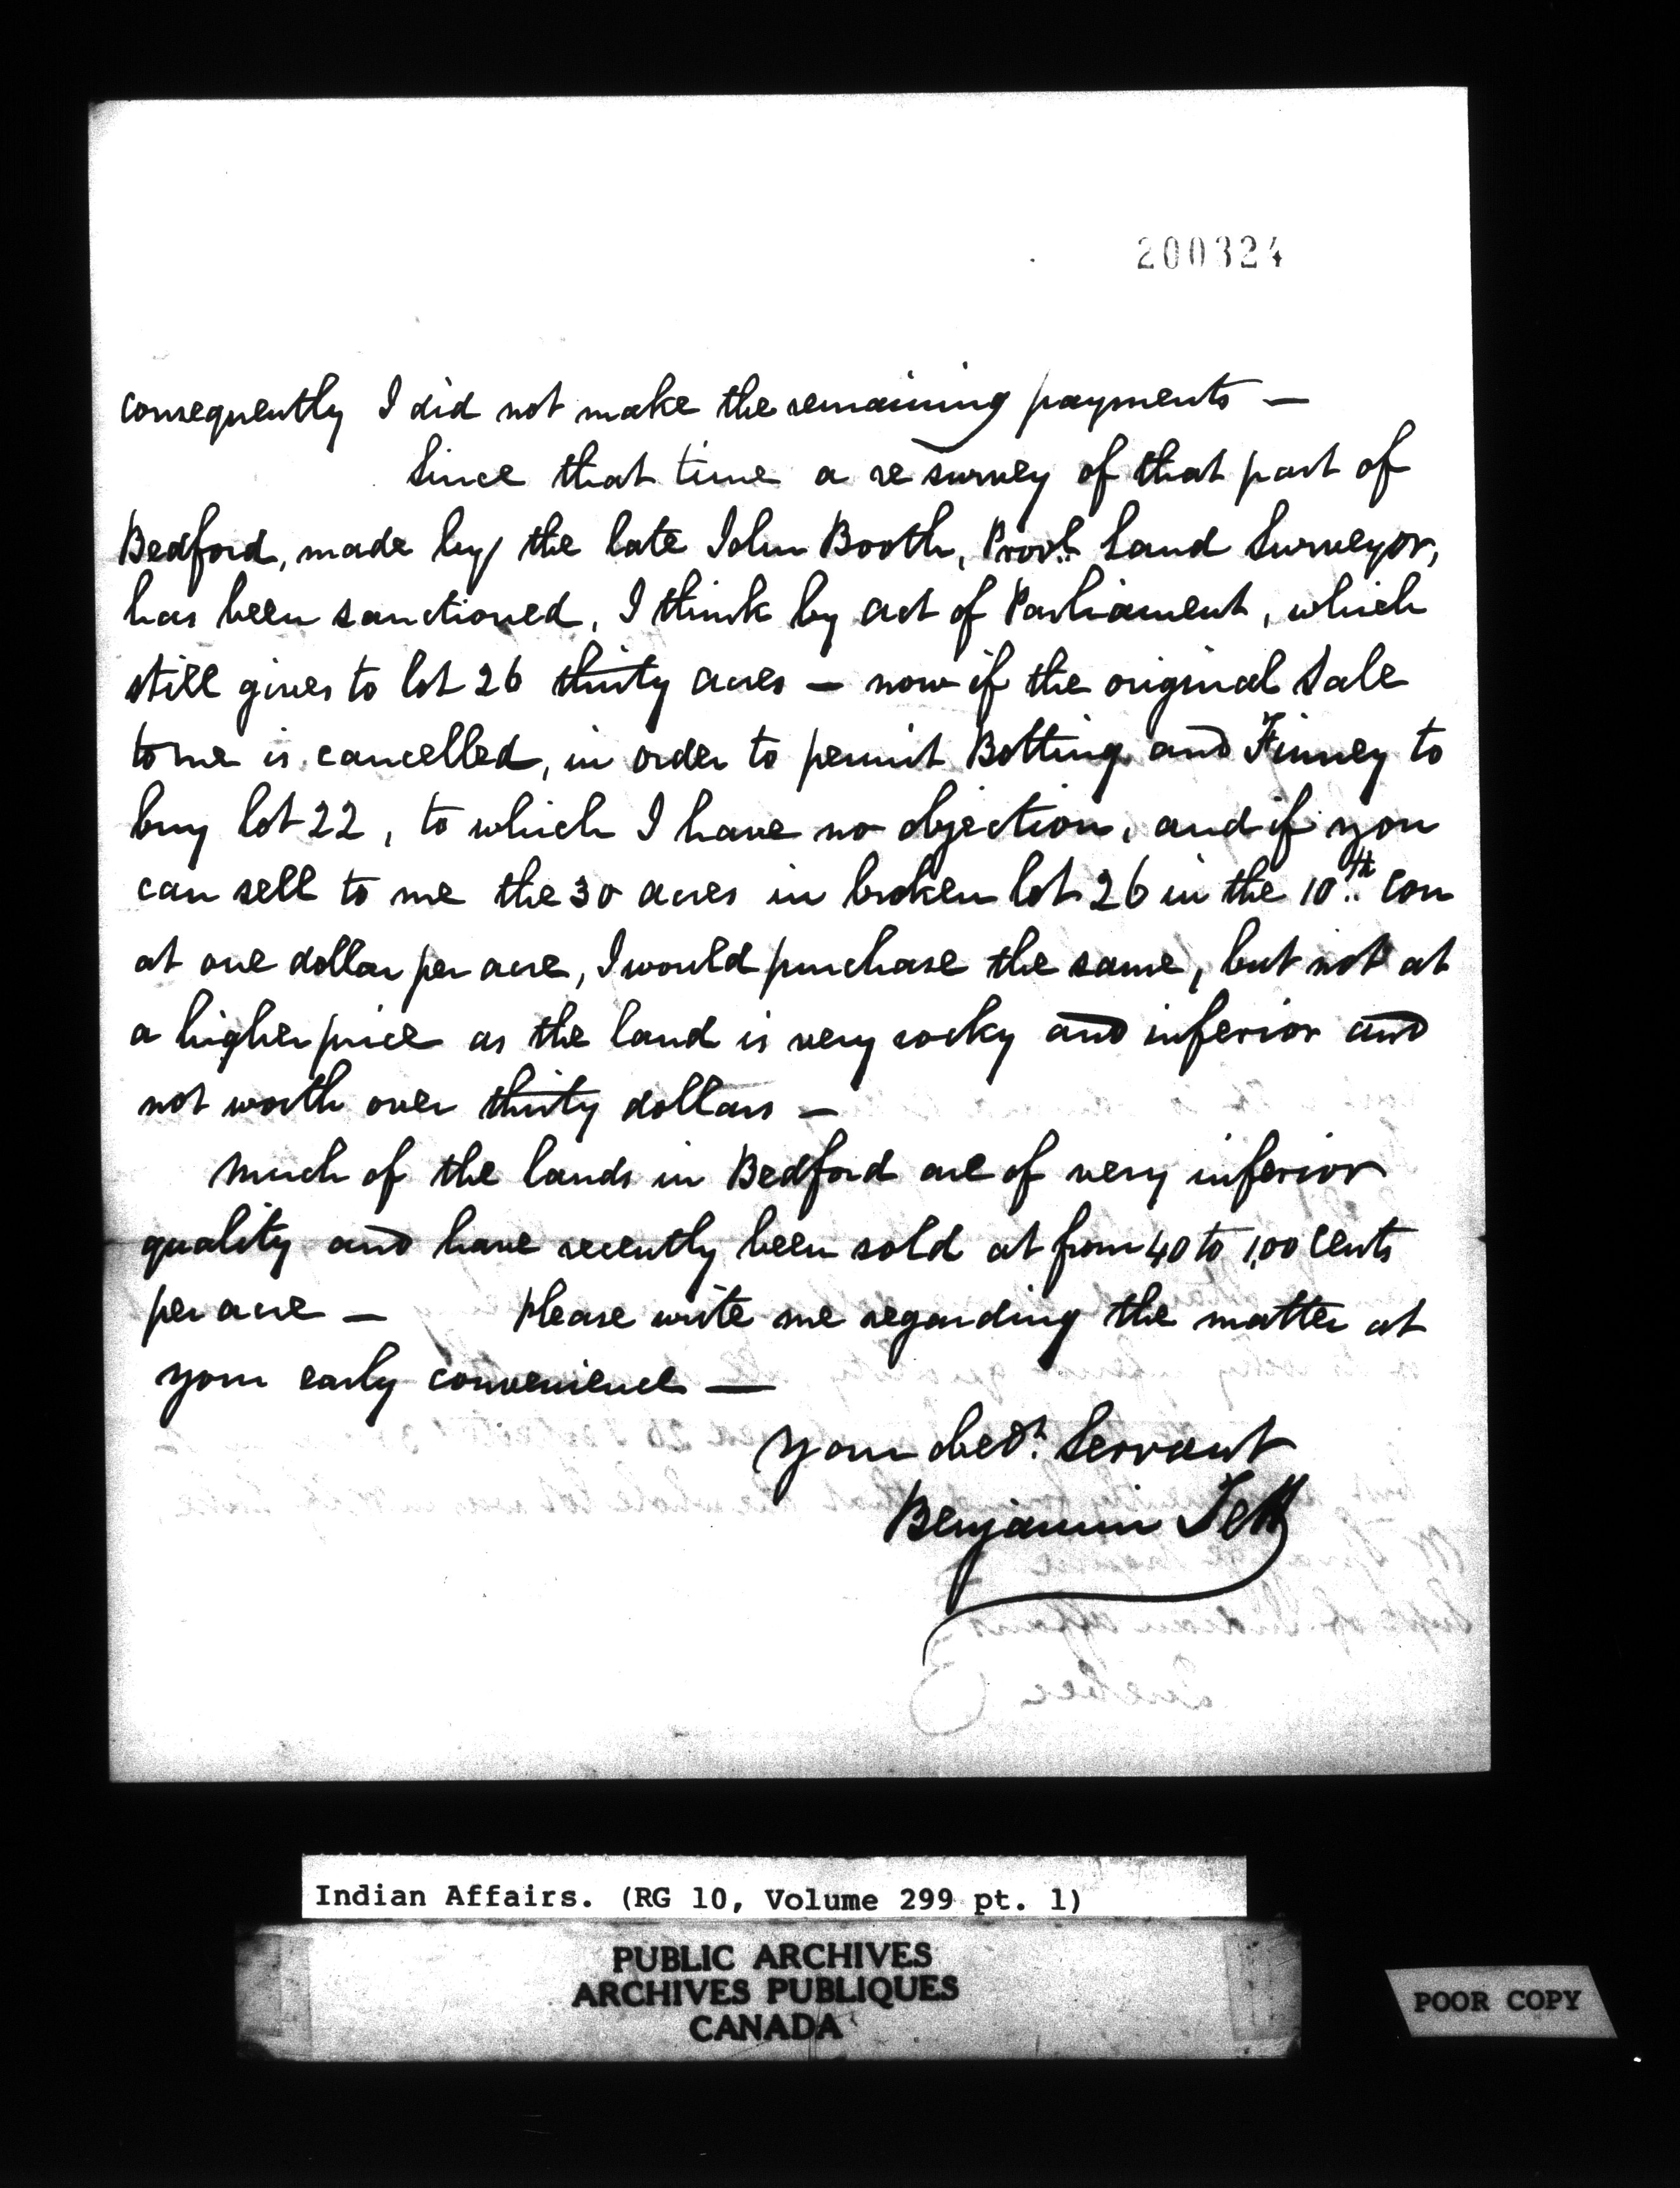 200324
consequently I did not make the remaining payments —
Since that time a re survey of that part of
Bedford, made by the late John Booth, Provl. Land Surveyor,
has been sanctioned, I think by act of Parliament, which
still gives to lot 26 thirty acres — now if the original Sale
to me is cancelled, in order to permit Botting and Finney to
buy lot 22, to which I have no objection, and if you
can sell to me the 30 acres in broken lot 26 in the 10th Con
at one dollar per acre, I would purchase the same, but not at
a higher price as the land is very rocky and inferior and
not worth over thirty dollars —
Much of the lands in Bedford are of very inferior
quality and have recently been sold at from 40 to 1,00 Cents
per acre — Please write me regarding the matter at
your early convenience —
Your obedt. Servant
Benjamin Tett
Indian Affairs. (RG 10, Volume 299 pt. 1)
PUBLIC ARCHIVES
ARCHIVES PUBLIQUES
CANADA
POOR COPY